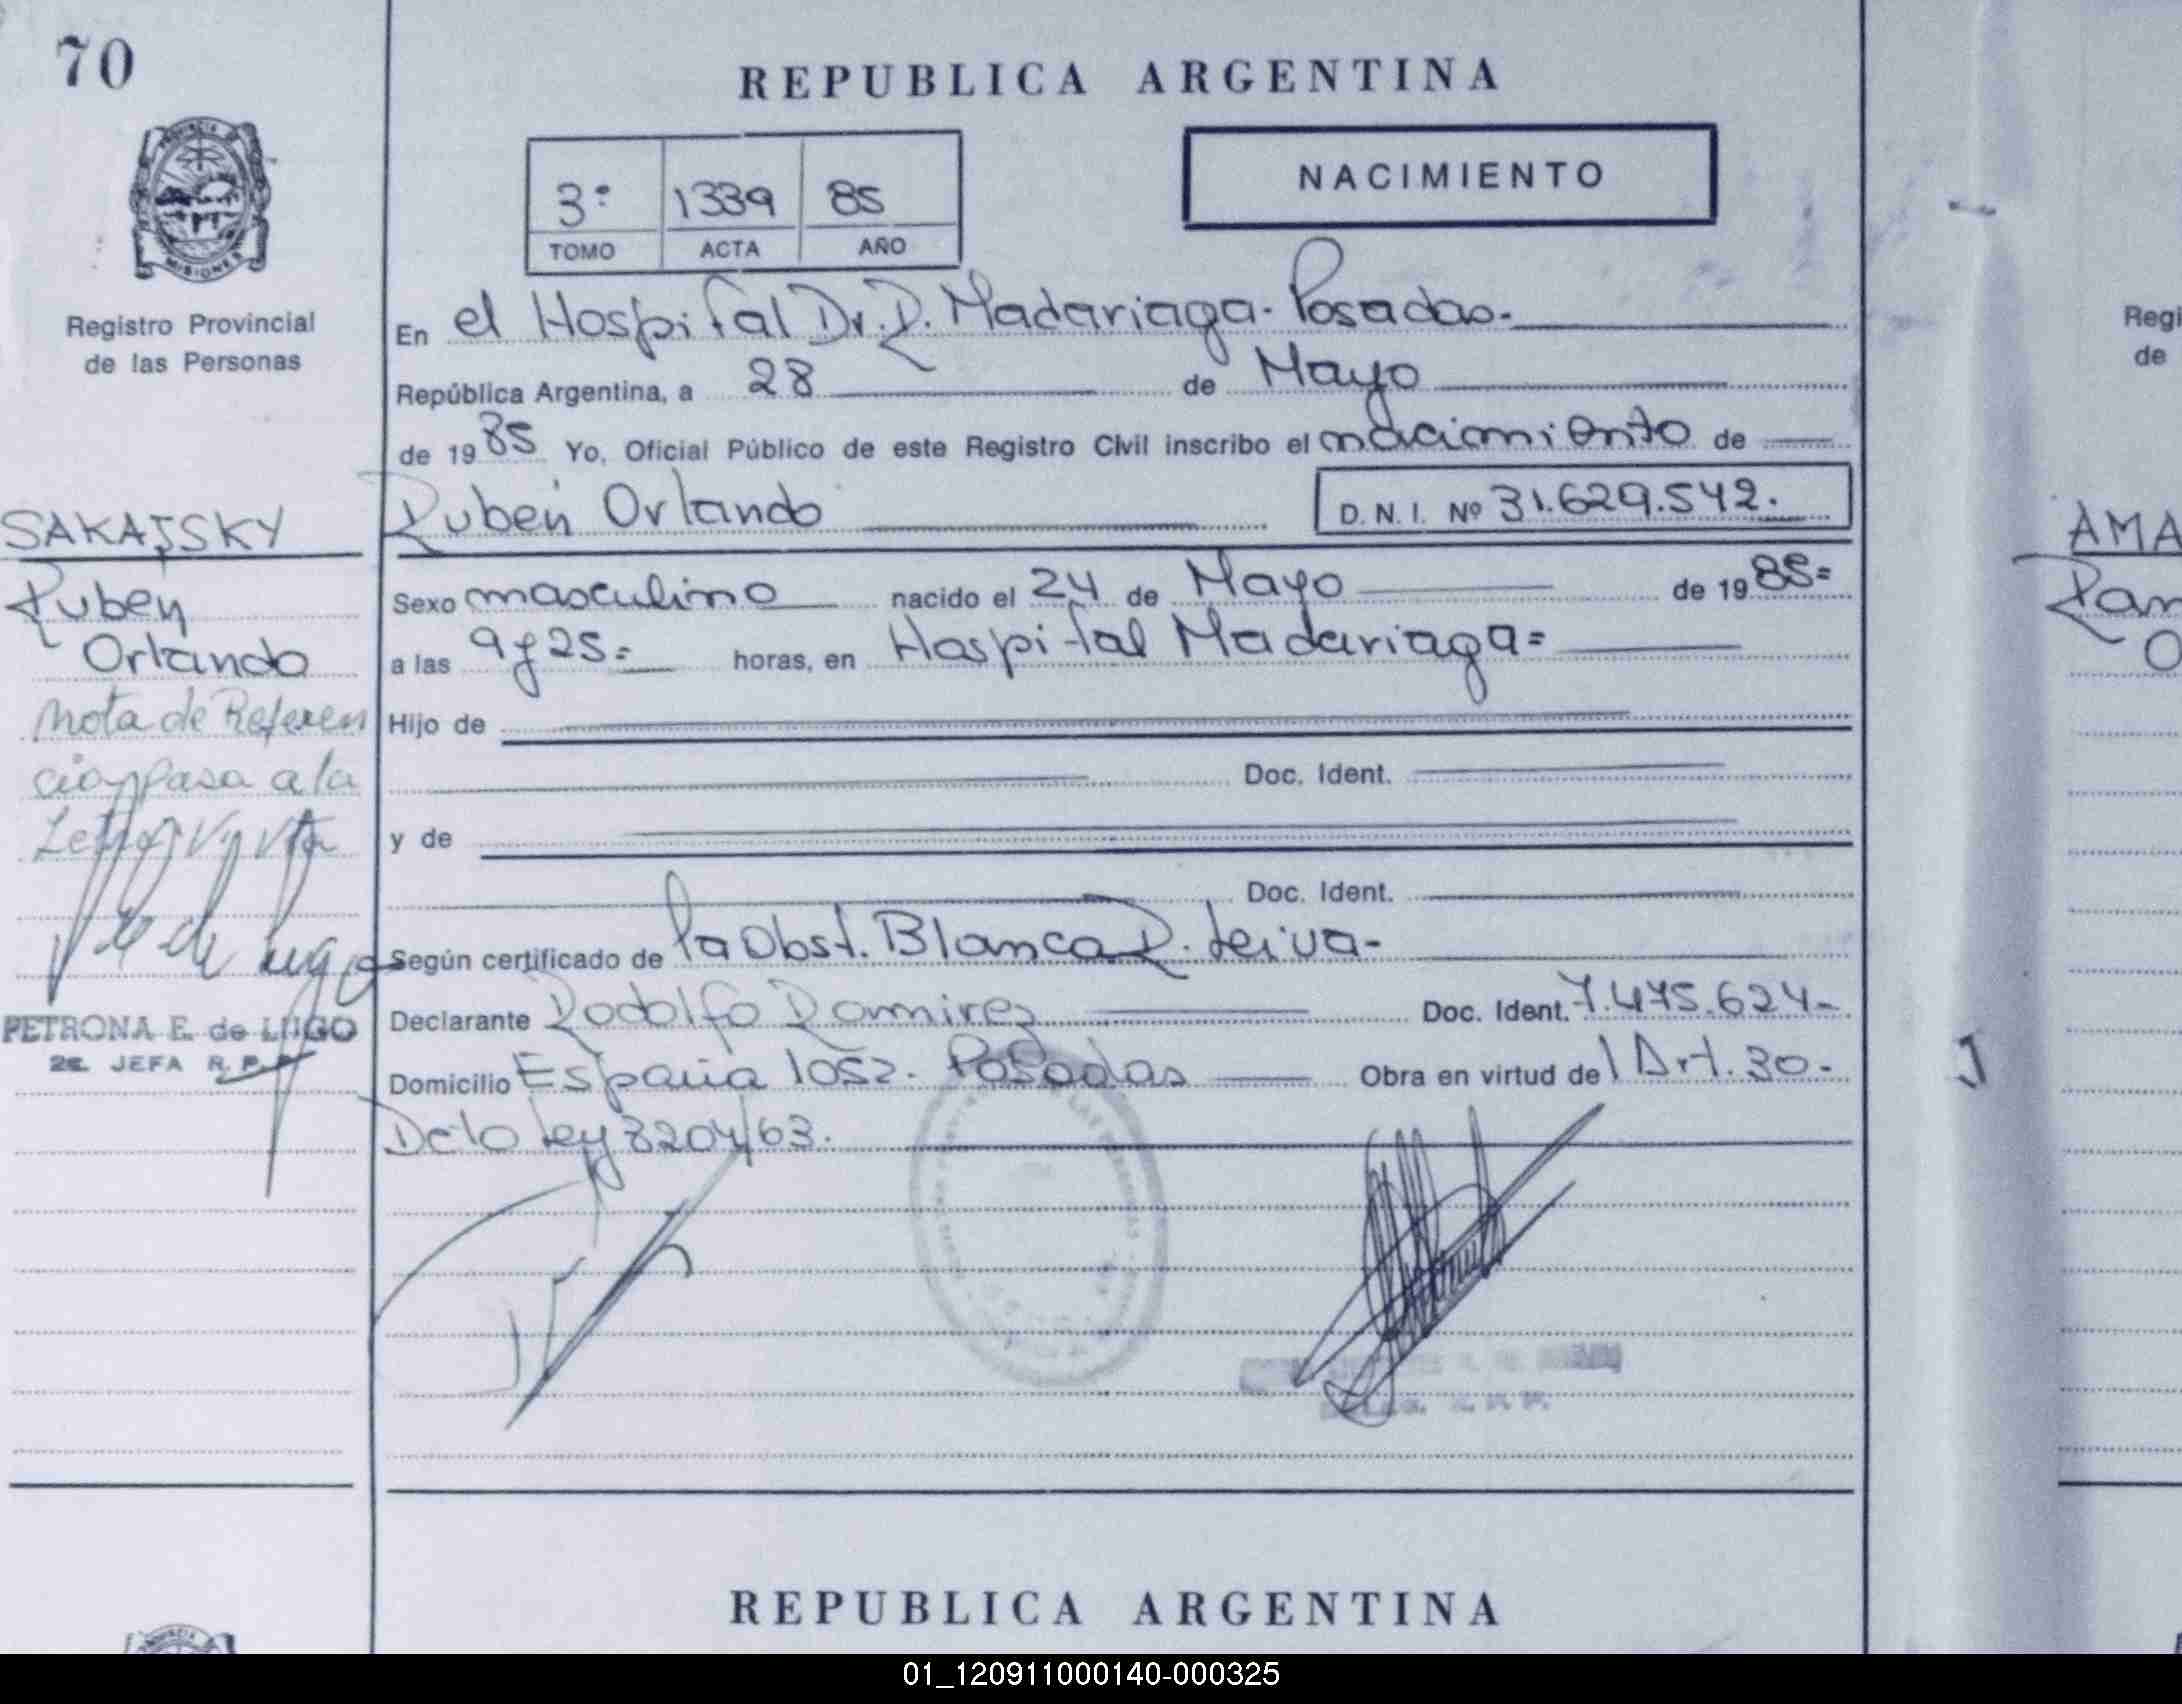 70
REPUBLICA ARGENTINA
3º 1339 85
TOMO ACTA AÑO
NACIMIENTO
PROVINCIA DE
MISIONES
Registro Provincial
de las Personas
En el Hospital Dr. R. Madariaga. Posadas.
República Argentina, a 28 de Mayo
de 19 85 Yo, Oficial Público de este Registro Civil inscribo el nacimiento de
Rubén Orlando D. N. I. Nº 31.629.542.
SAKAJSKY
Rubén
Orlando
Nota de Referen
cia pasa a la
Sexo masculino nacido el 24 de Mayo de 19 85=
a las 9 y 25= horas, en Hospital Madariaga=
Hijo de
Doc. Ident.
y de
Doc. Ident.
Según certificado de la Obst. Blanca R. Leiva-
Declarante Rodolfo Ramirez Doc. Ident. 7.475.624-
Domicilio España 1052. Posadas Obra en virtud del Art. 30.
Dcto Ley 8204/63.
de Lugo
PETRONA E. de LUGO
2e. JEFA R.P.P
Regi
de
AMA
Ram
O
REPUBLICA ARGENTINA
01_120911000140-000325